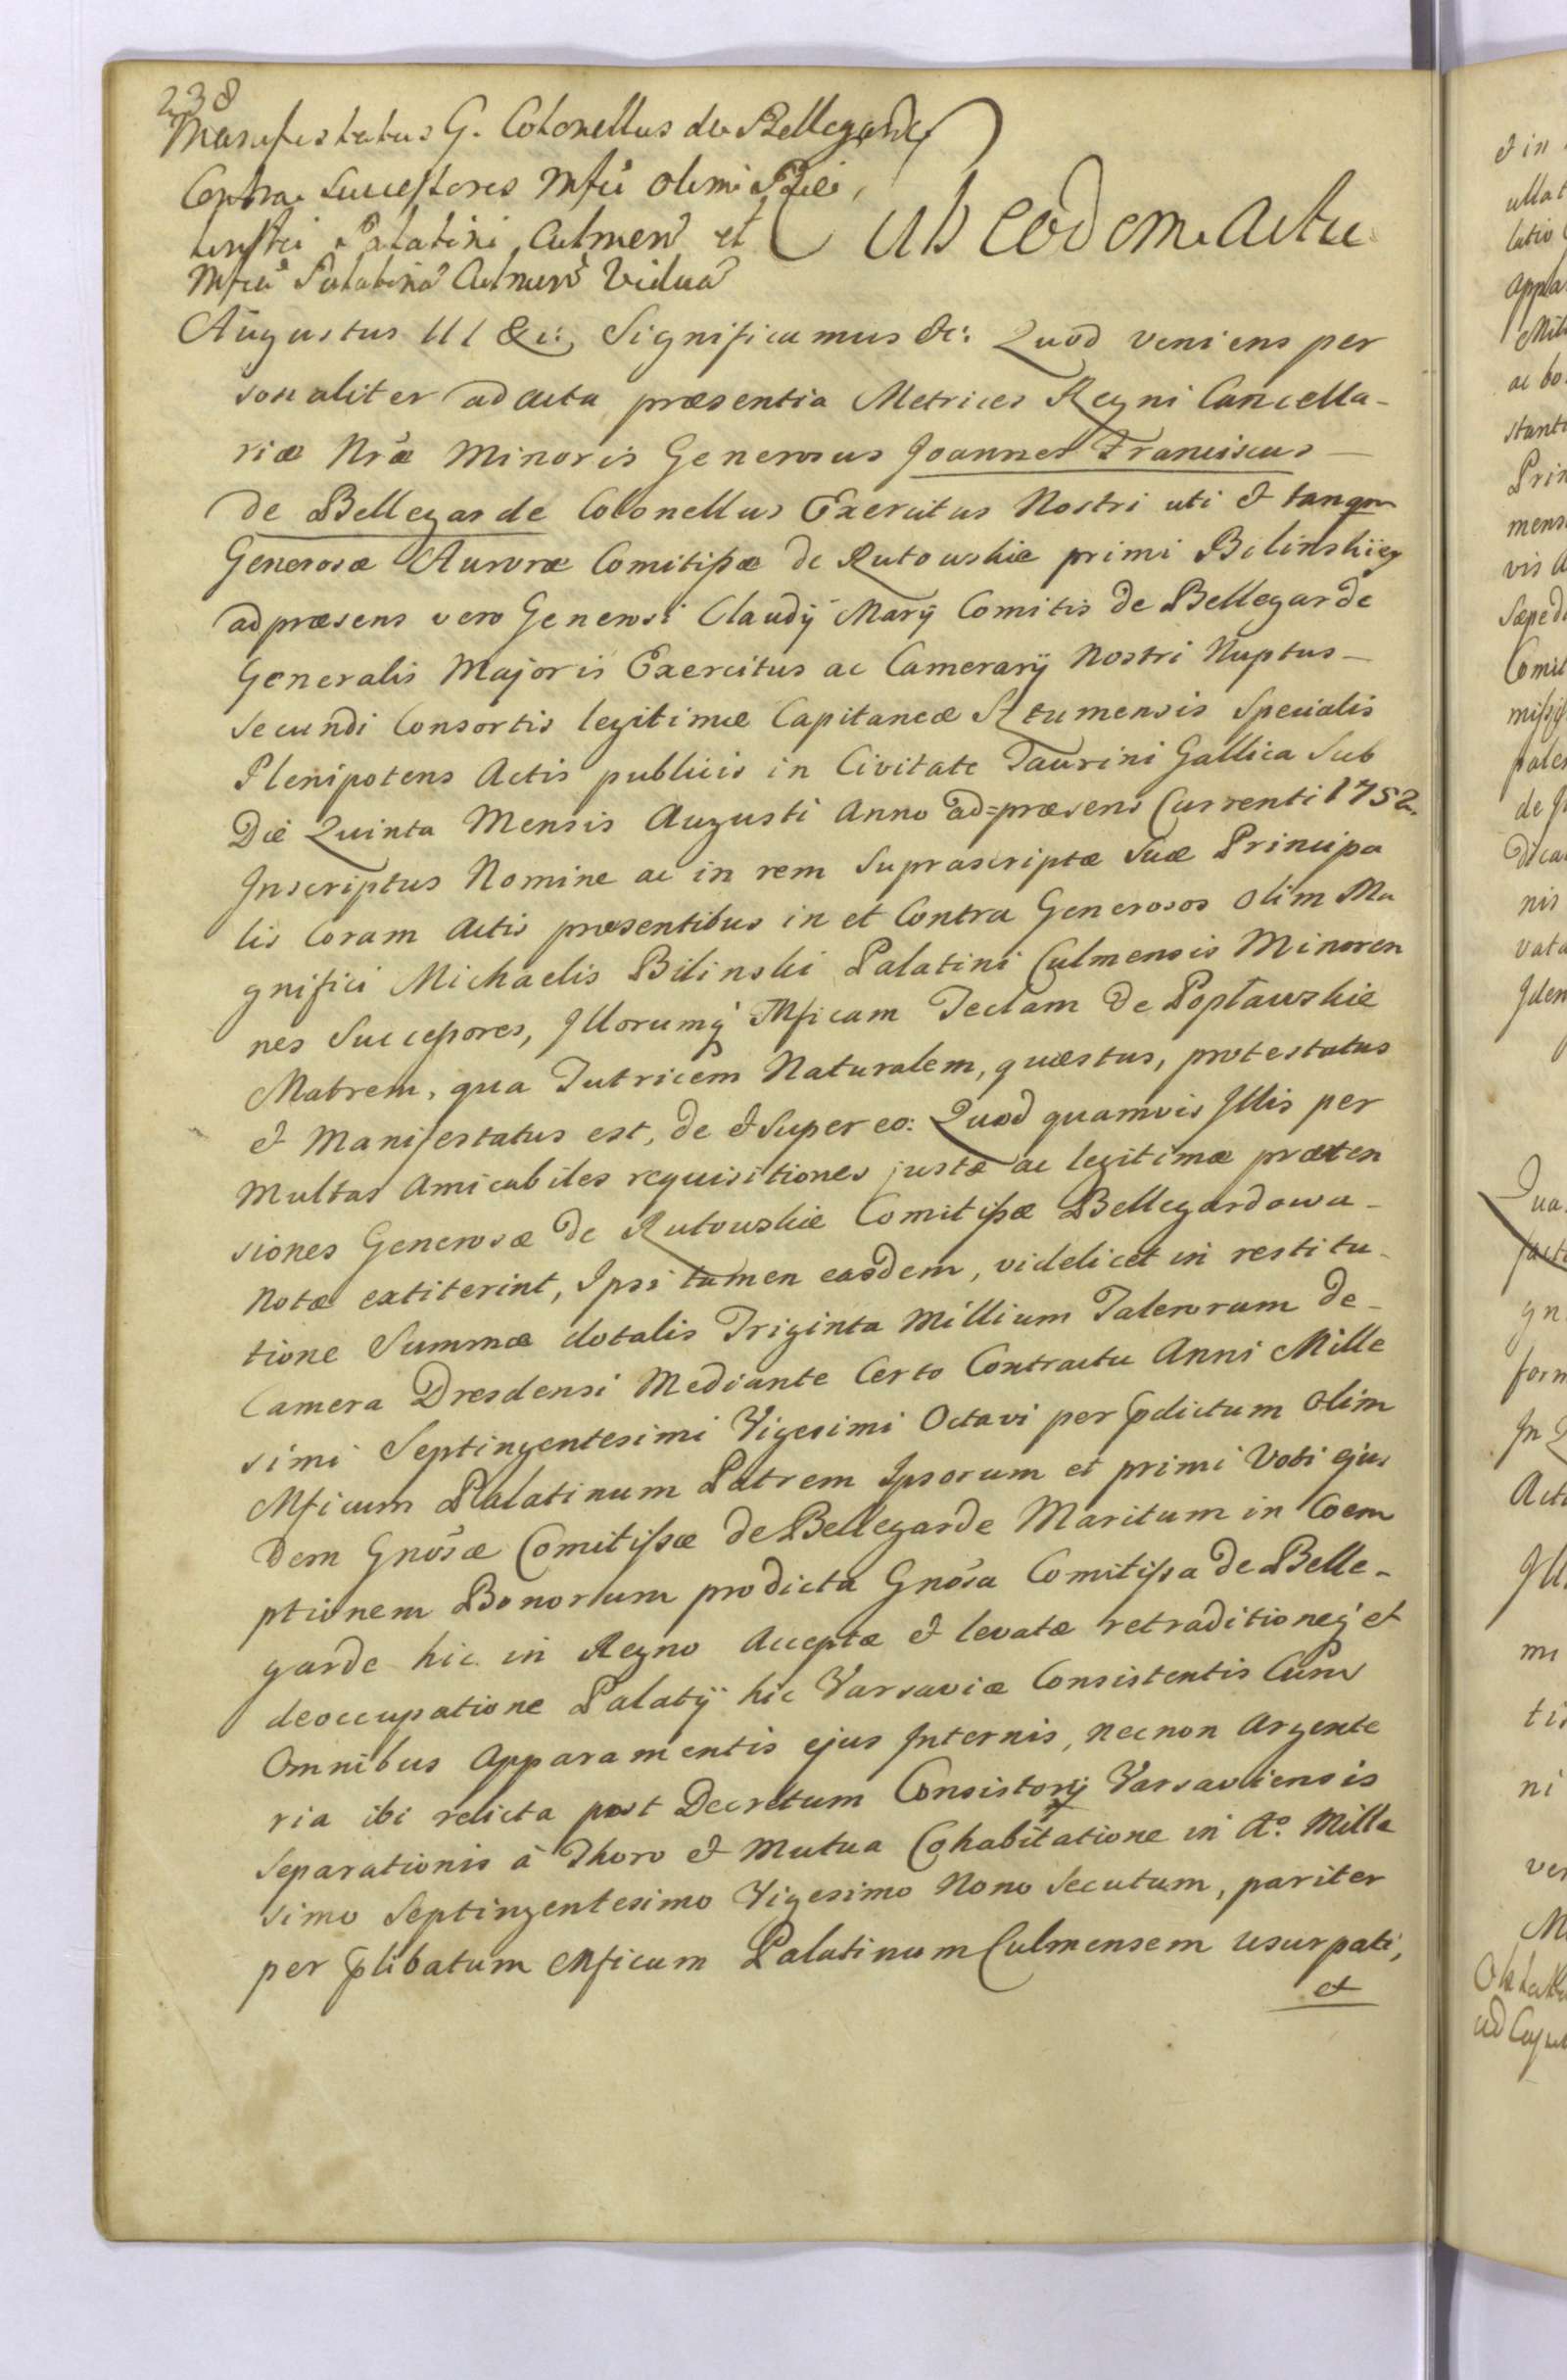 238
Manifestatus G. Colonellus de Bellegarde
Contra Successores Mfci olim Bieli,
linski Palatini Culmen et
Mfcā Palatinā Culmen Viduā
Sub eodem actu
Augustus III &c: Significamus &c: Quod veniens per
sonaliter ad acta præsentia Metrices Regni Cancella-
riæ Nrǣ Minoris Generosus Joannes Franciscus
de Bellegarde Colonellus Exercitus Nostri uti & tanqm
Generosæ Auroræ Comitißæ de Rutowskie primi Bilinskiey
adpræsens vero Generosi Claudij Marij Comitis de Bellegarde
Generalis Majoris Exercitus ac Camerarij Nostri Nuptus
Secundi Consortis legitimæ Capitaneæ Sztumensis Specialis
Plenipotens Actis publicis in Civitate Taurini Gallica Sub
Die Quinta Mensis Augusti Anno ad=præsens Currenti 1752.
Inscriptus Nomine ac in rem Suprascriptæ Suæ Principa
lis Coram Actis præsentibus in et Contra Generosos olim Ma
gnifici Michaelis Bilinski Palatini Culmensis Minoren
nes Succeßores, Illorumq Mficam Teclam de Popławskie
Matrem, qua Tutricem Naturalem, quæstus, protestatus
& Manifestatus est, de & super eo: Quod quamvis Illis per
Multas Amicabiles requisitiones justæ ac legitimæ præten
siones Generosæ de Rutowskie Comitißæ Bellegardowa-
Notæ extiterint, Ipsi tamen easdem, videlicet in restitu-
tione Summæ dotalis Triginta Millium Talerorum de-
Camera Dresdensi Mediante Certo Contractu Anni Mille
simi Septingentesimi Vigesimi Octavi per pdictum olim
Mficum Palatinum Patrem Ipsorum et primi Voti ejus
dem Gnosæ Comitißæ de Bellegarde Maritum in Coem
ptionem Bonorum pro dicta Gnosa Comitißa de Belle-
garde hic in Regno Acceptæ & levatæ retraditioneq et
deoccupatione Palatij hic Varsaviæ Consistentis Cum
Omnibus Apparamentis ejus Internis, necnon Argente
ria ibi relicta post Decretum Consistorij Varsaviensis
Separationis à Thoro & Mutua Cohabitatione in Aº Mille
simo Septingentesimo Vigesimo Nono Secutum, pariter
per plibatum Mficum Palatinum Culmensem usurpati,
et